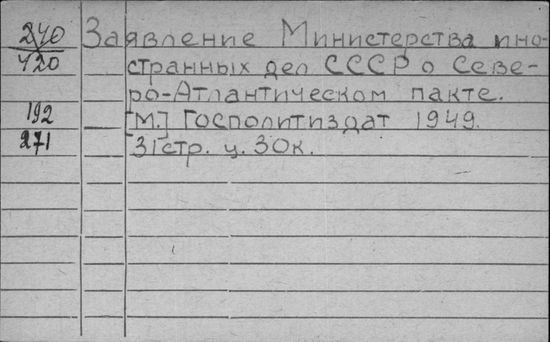 240 Заявление Министерства ино-
420 странных дел СССР о Севе-
ро-Атлантическом пакте.
192 [М.] Госполитиздат 1949.
271 31 стр. ц. 30к.